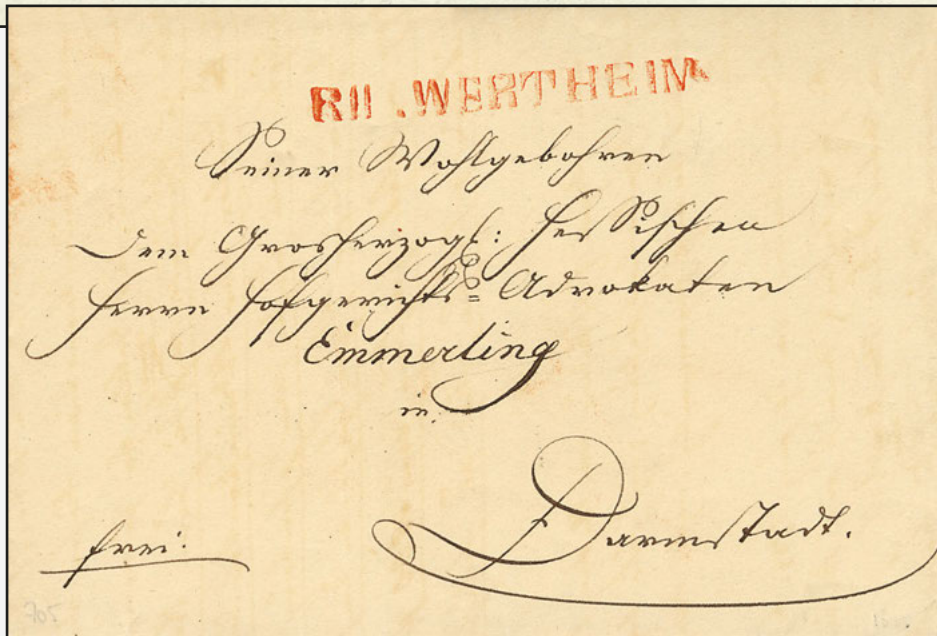 RII .WERTHEIM
Seiner Wohlgebohren
Dem Grosherzogl: Hessischen
Herrn Hofgerichts= Advokaten
Emmerling
in
Darmstadt.
frei.
705